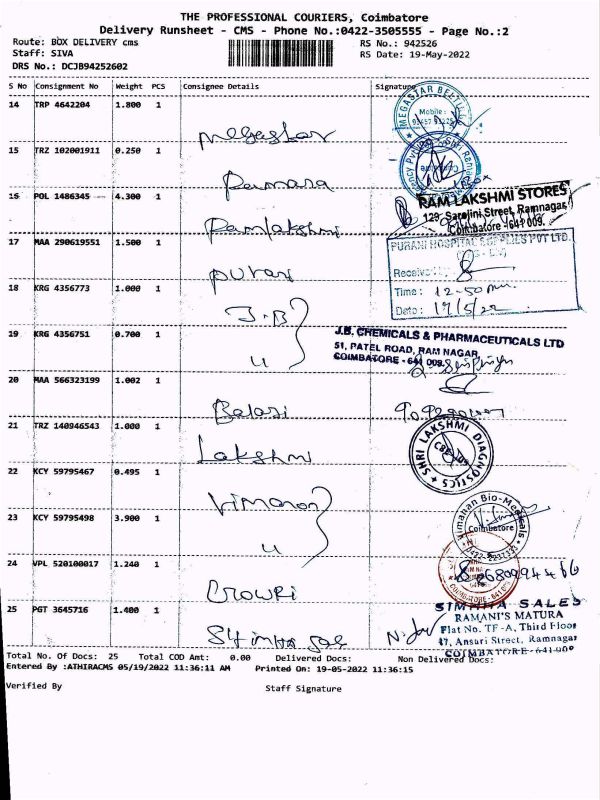 THE PROFESSIONAL COURIERS, Coimbatore
Delivery Runsheet - CMS - Phone No.:0422-3505555 - Page No.:2
Route: BOX DELIVERY cms
Staff: SIVA
DRS No.: DCJB94252602
RS No.: 942526
RS Date: 19-May-2022
S No Consignment No Weight PCS Consignee Details Signature
14 TRP 4642204 1.800 1 megastar
MEGASTAR BELTI
Mobile :
15 TRZ 102001911 0.250 1
16 POL 1486345 4.300 1 Ramlakshmi
RAM LAKSHMI STORES
129, Sarojini Street, Ramnagar,
Coimbatore - 641 009.
17 MAA 290619551 1.500 1 purani
PURANI HOSPITAL SUPPLIES PVT LTD.
Received
Time : 12-50 pm.
Date : 19/5/22
18 KRG 4356773 1.000 1 J.B
19 KRG 4356751 0.700 1 u
J.B. CHEMICALS & PHARMACEUTICALS LTD
51, PATEL ROAD, RAM NAGAR,
COIMBATORE - 641 009.
20 MAA 566323199 1.002 1 Balaji
21 TRZ 140946543 1.000 1 Lakshmi
SHRI LAKSHMI DIAGNOSTICS
22 KCY 59795467 0.495 1 Vimanan
23 KCY 59795498 3.900 1 u
Vimanan Bio-Medicals
Coimbatore
24 VPL 520100017 1.240 1 Gowri
25 PGT 3645716 1.400 1
SIMHHA SALES
RAMANI'S MATURA
Flat No. TF-A, Third Floor
47, Ansari Street, Ramnagar
COIMBATORE - 641 009
Total No. Of Docs: 25 Total COD Amt: 0.00 Delivered Docs: Non Delivered Docs:
Entered By :ATHIRACMS 05/19/2022 11:36:11 AM Printed On: 19-05-2022 11:36:15
Verified By Staff Signature